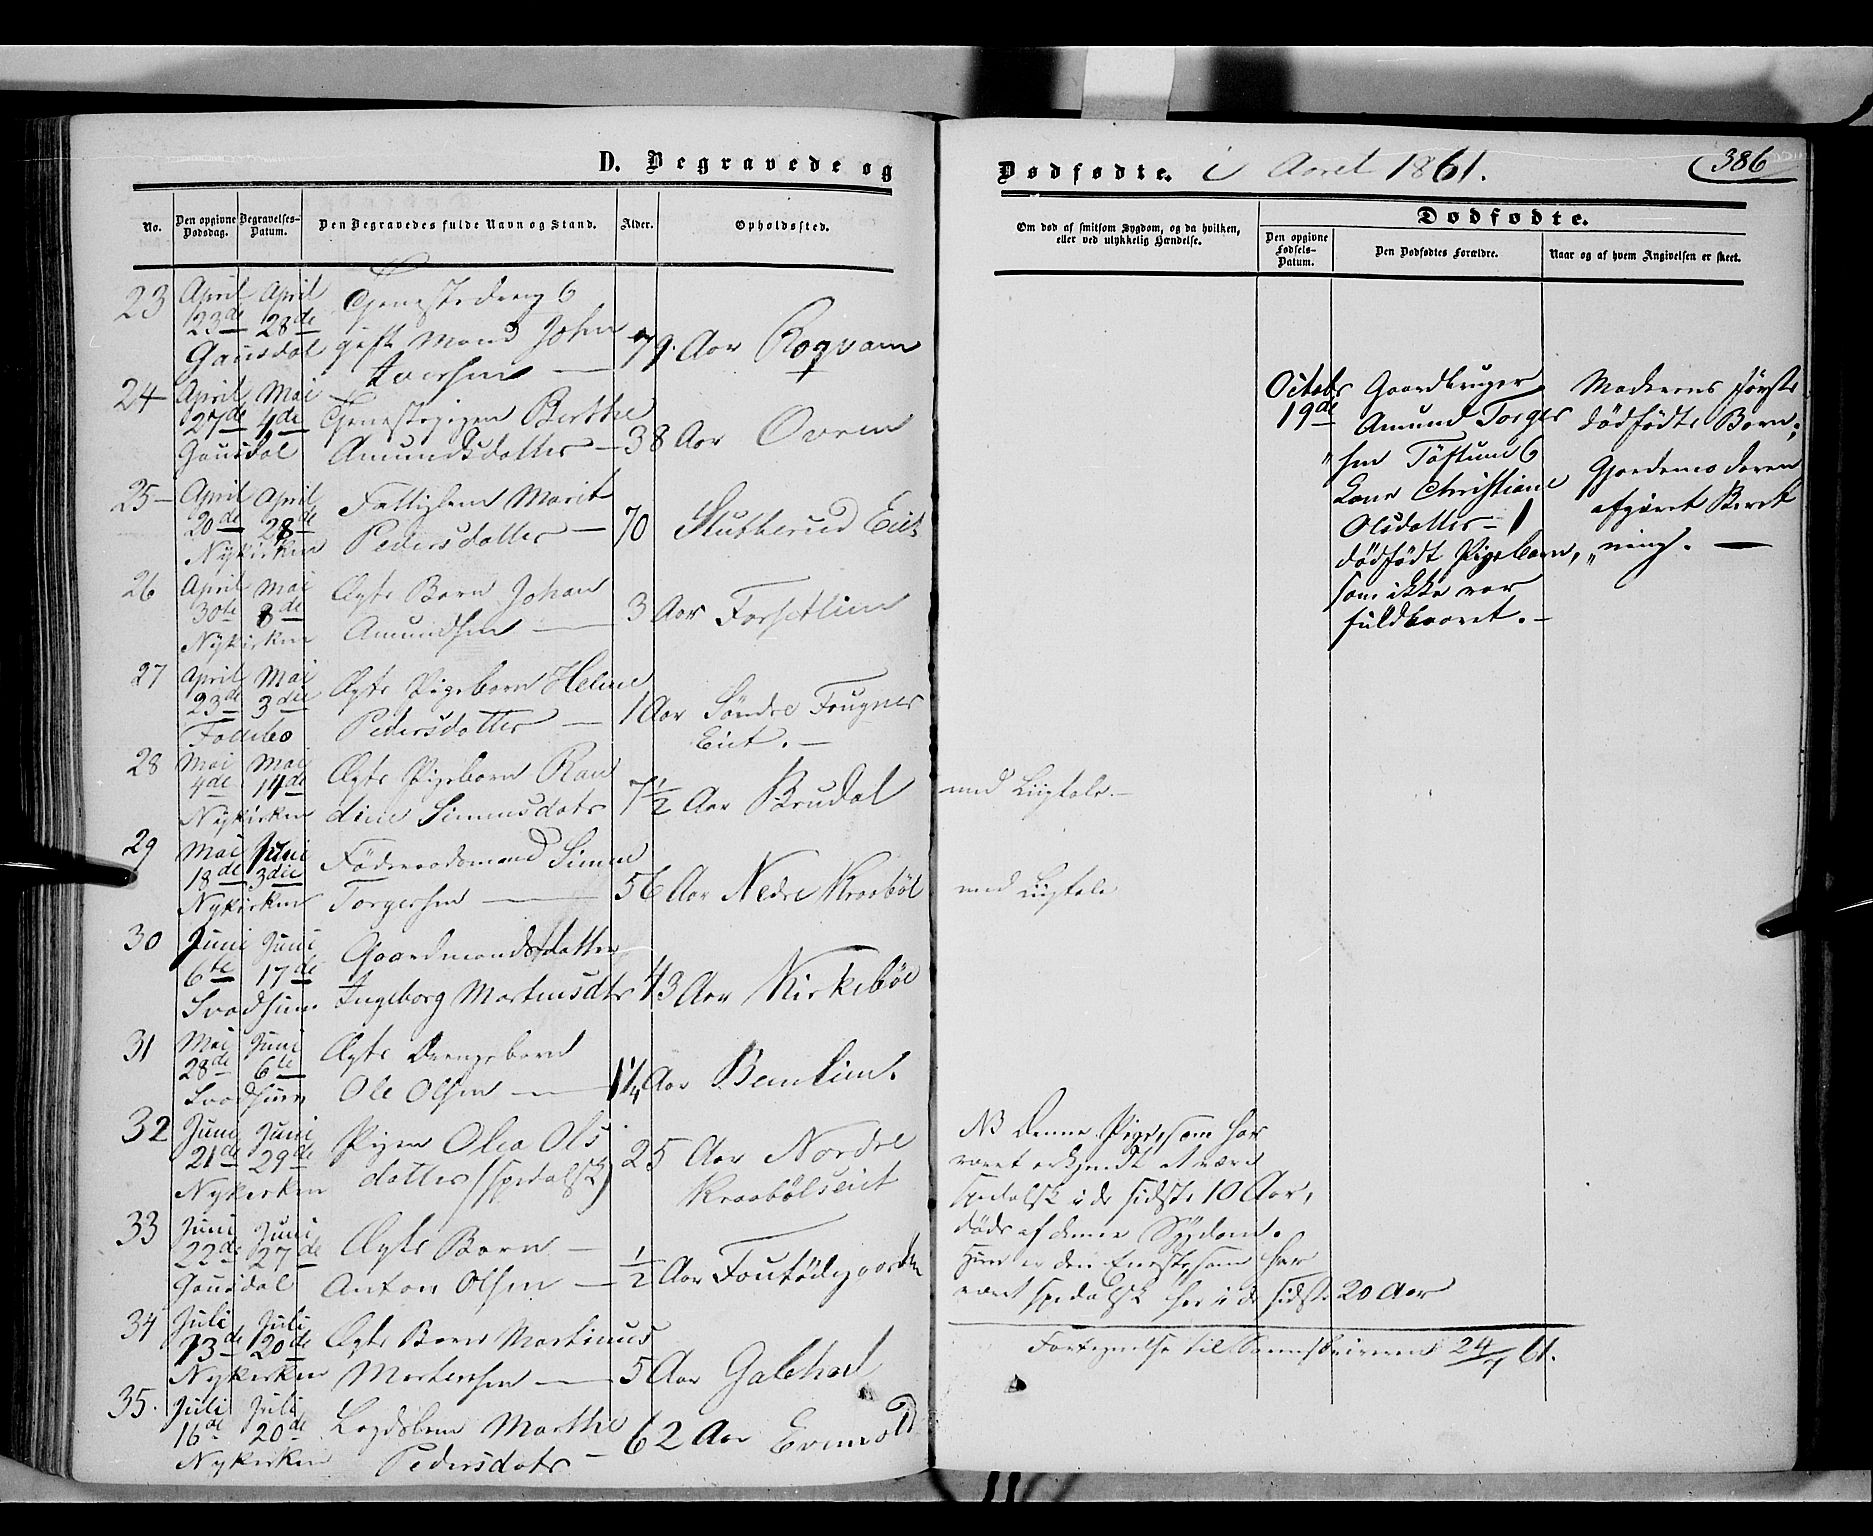 D. Begravede og
No.
Den opgivne Dødsdag.
Begravelses-Datum.
Den Begravedes fulde Navn og Stand.
Alder.
Opholdssted.
23 April 23de April 28de Tjenestedreng &
Gausdal gift Mand John 79. Aar Rogvam
Iversen —
24 April 27de Mai 4de Tjenestepigen Berthe
Gausdal Amundsdatter — 38 Aar Oven
25 April 20de April 28de Fattiglem Marit
Nykirken Pedersdatter — 70 Stubberud Eie
26 April 30te Mai 8de Ægte Barn Johan
Nykirken Amundsen — 3 Aar Forsetlien
27 April 23de Mai 3die Ægte Pigebarn Heline
Follebo Pedersdatter — 1 Aar Söndre Fougner
Eiet. —
28 Mai 4de Mai 14de Ægte Pigebarn Ran
Nykirken dine Simensdatr 7½ Aar Brudal
29 Mai 18de Juni 3die Föderaadsmand Simen
Nykirken Torgersen — 56 Aar Nedre Kraaböl
30 Juni 6te Juni 17de Gaardmandsdatter
Svadsum Ingeborg Martinsdtr 43 Aar Kirkeböe
31 Mai 28de Juni 6te Ægte Drengebarn
Svadsum Ole Olsen — 1¼ Aar Benlien.
32 Juni 21de Juni 29de Pigen Olea Ols
Nykerken datter (spedalsk) 25 Aar Nordre
Kraabölseiet
33 Juni 22de Juni 27de Ægte Barn —
Gausdal Anton Olsen — ½ Aar
34 Juli 13de Juli 20de Ægte Barn Martinus
Nykerken Mortensen — 5 Aar Galehod
35. Juli 16de Juli 20de Lægdslem Marthe
Nykerken Pedersdatr — 62 Aar Evensvold
Dødfødte. i Aaret 1861.
386
Om død af smitsom Sygdom, og da hvilken, eller ved ulykkelig Hændelse.
Dødfødte.
Den opgivne Fødsels-Datum.
Den Dødfødtes Forældre.
Naar og af hvem Angivelsen er skeet.
Octobr 19de
Gaardbruger
Amund Torger
"sen Töftum &
Kone Christiane
Olsdatter — 1
dödfödt Pigebarn,
som ikke var
fuldbaaret. —
Moderens förste
dödfödte Barn,
Gjordemoderen
afgivet Beret
"ning. —
med Liigtale. —
med Liigtale
NB Denne Pige, som har
været erkjendt at være
spedalsk i de sidste 10 Aar,
döde af denne Sygdom.
Hun er den Eneste, som har
været spedalsk her i de sidste 20 Aar
Fortegnelse til Sorenskriveren 24/7 61.